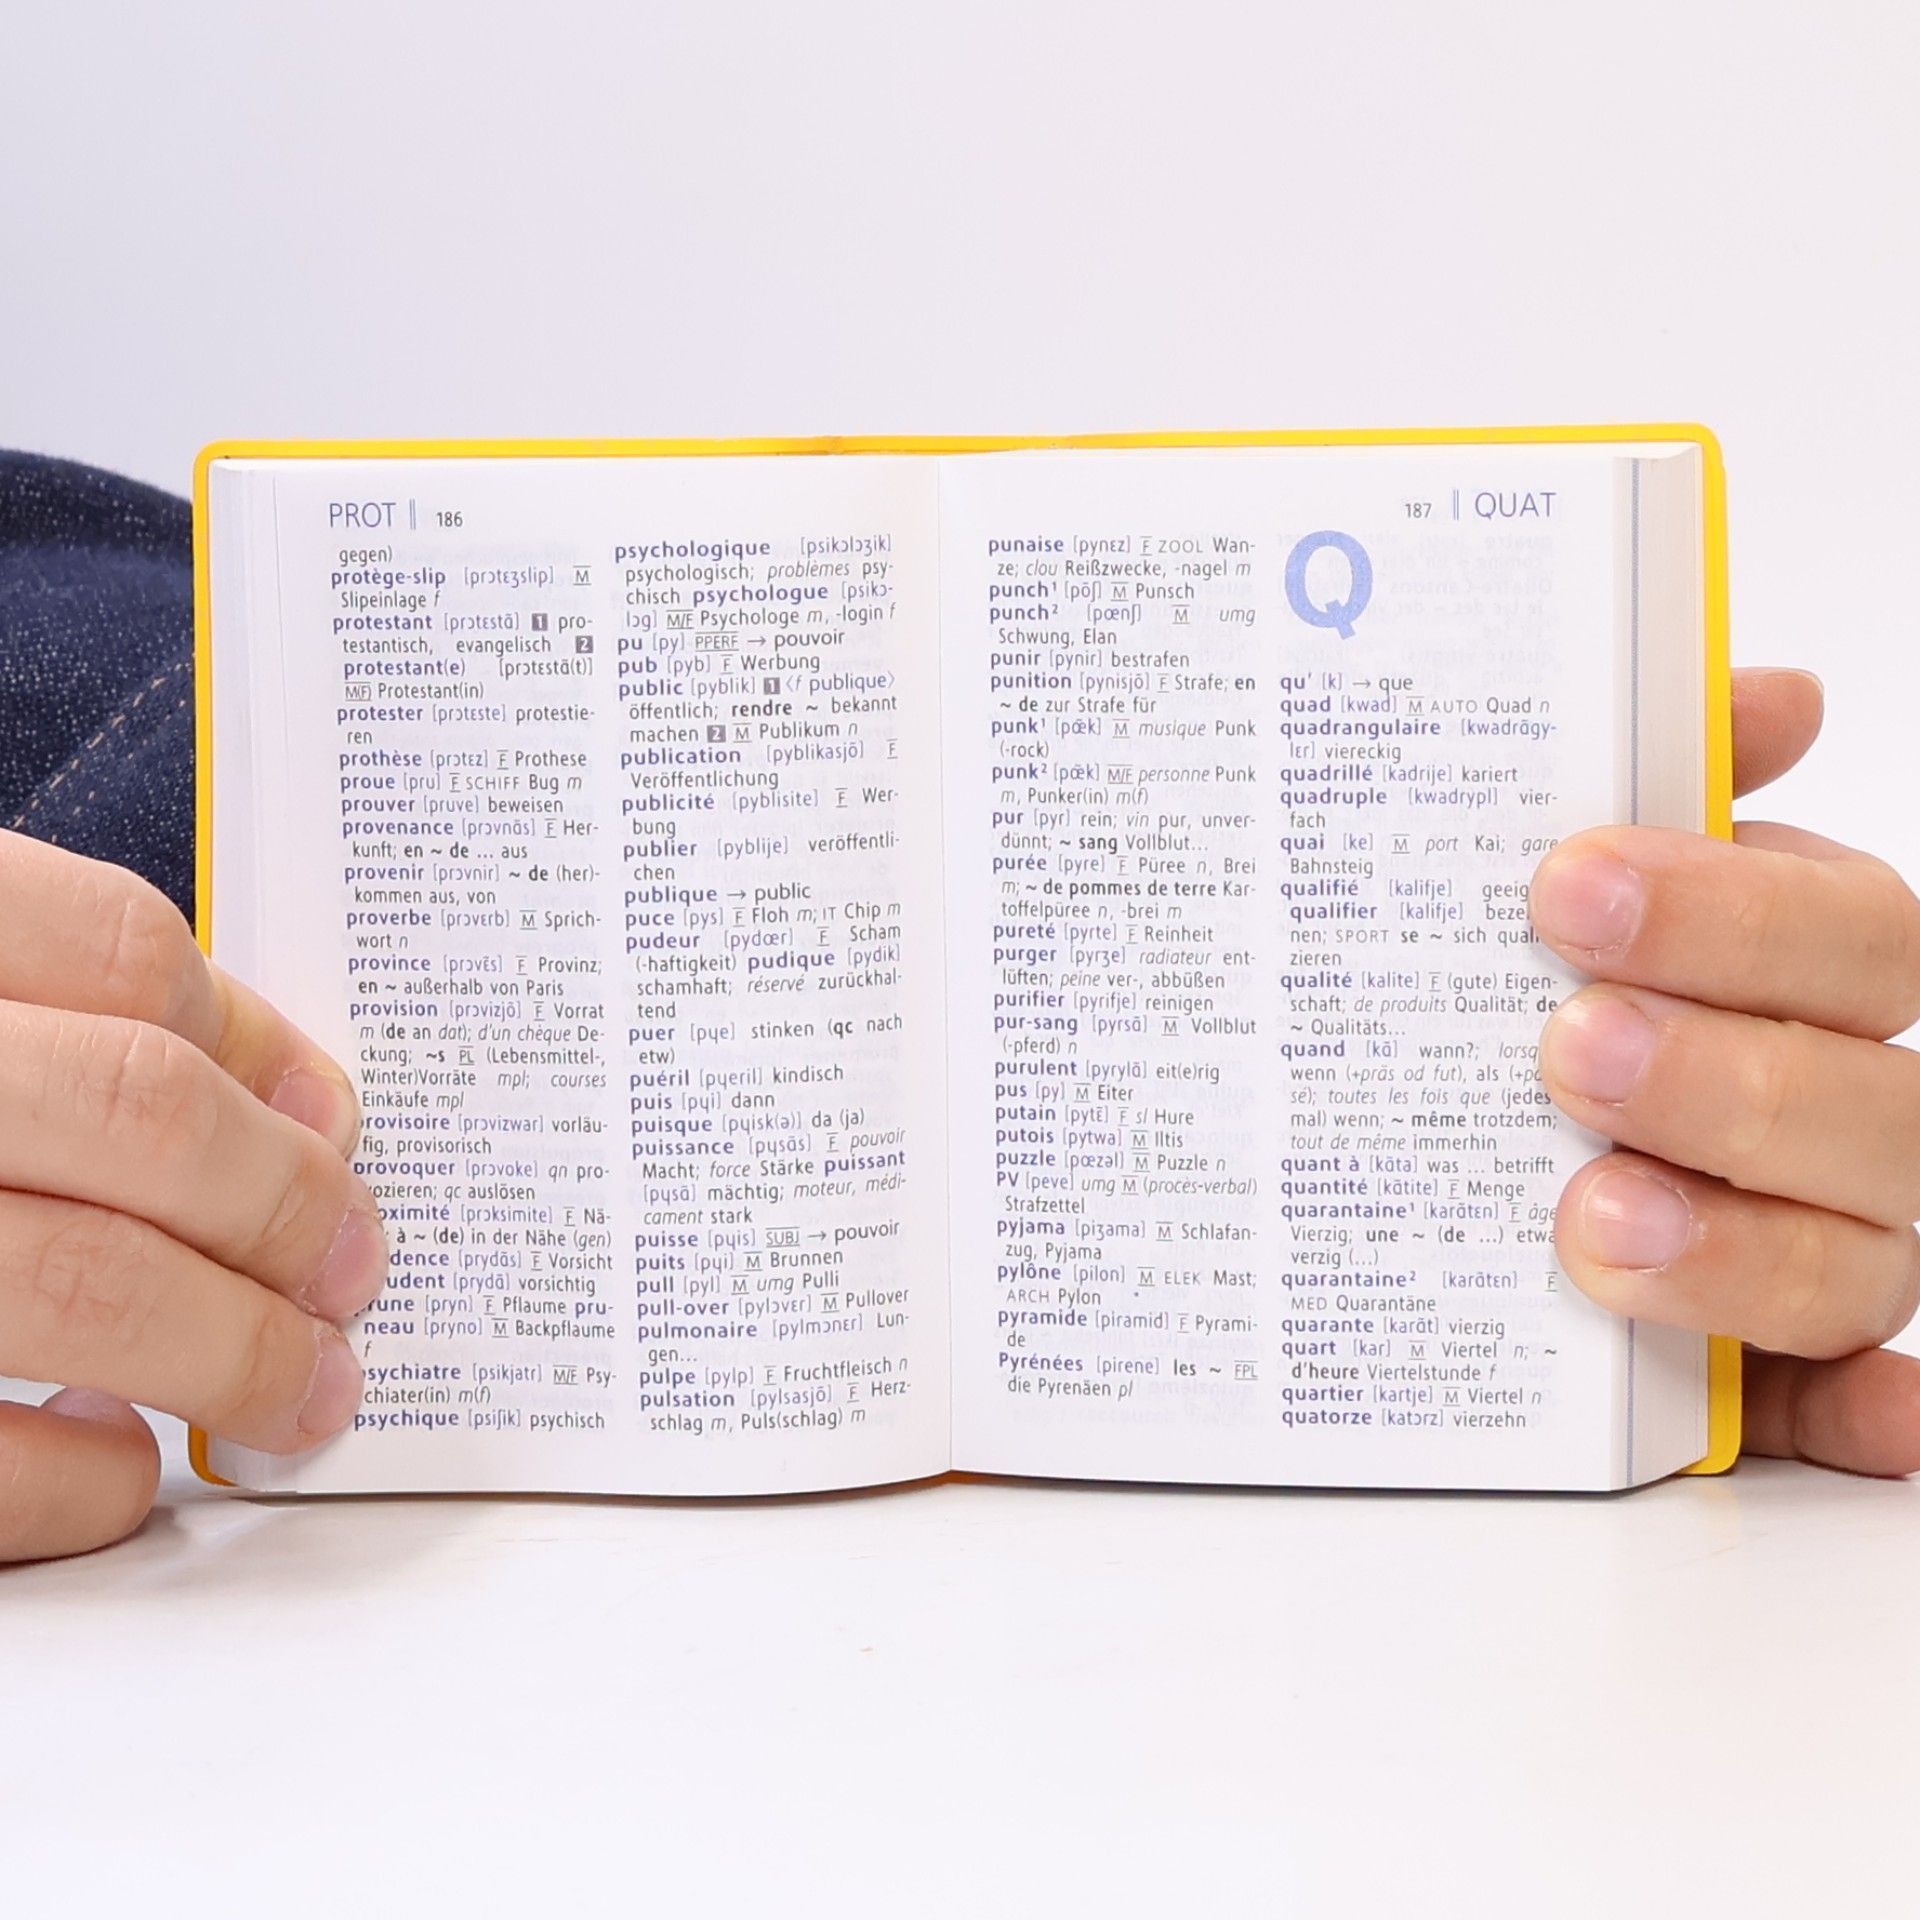 PROT || 186
gegen)
protège-slip [prɔtɛʒslip] M
Slipeinlage f
protestant [prɔtɛstɑ̃] 1 pro-
testantisch, evangelisch 2
protestant(e) [prɔtɛstɑ̃(t)]
M(F) Protestant(in)
protester [prɔtɛste] protestie-
ren
prothèse [prɔtɛz] F Prothese
proue [pru] F SCHIFF Bug m
prouver [pruve] beweisen
provenance [prɔvnɑ̃s] F Her-
kunft; en ~ de ... aus
provenir [prɔvnir] ~ de (her)-
kommen aus, von
proverbe [prɔvɛrb] M Sprich-
wort n
province [prɔvɛ̃s] F Provinz;
en ~ außerhalb von Paris
provision [prɔvizjɔ̃] F Vorrat
m (de an dat); d'un chèque De-
ckung; ~s PL (Lebensmittel-,
Winter)Vorräte mpl; courses
Einkäufe mpl
rovisoire [prɔvizwar] vorläu-
fig, provisorisch
provoquer [prɔvɔke] qn pro-
vozieren; qc auslösen
oximité [prɔksimite] F Nä-
à ~ (de) in der Nähe (gen)
dence [prydɑ̃s] F Vorsicht
udent [prydɑ̃] vorsichtig
rune [pryn] F Pflaume pru-
neau [pryno] M Backpflaume
f
sychiatre [psikjatr] M/F Psy-
chiater(in) m(f)
psychique [psiʃik] psychisch
psychologique [psikɔlɔʒik]
psychologisch; problèmes psy-
chisch psychologue [psikɔ-
lɔg] M/F Psychologe m, -login f
pu [py] PPERF → pouvoir
pub [pyb] F Werbung
public [pyblik] 1 ⟨f publique⟩
öffentlich; rendre ~ bekannt
machen 2 M Publikum n
publication [pyblikasjɔ̃] F
Veröffentlichung
publicité [pyblisite] F Wer-
bung
publier [pyblije] veröffentli-
chen
publique → public
puce [pys] F Floh m; IT Chip m
pudeur [pydœr] F Scham
(-haftigkeit) pudique [pydik]
schamhaft; réservé zurückhal-
tend
puer [pɥe] stinken (qc nach
etw)
puéril [pɥeril] kindisch
puis [pɥi] dann
puisque [pɥisk(ə)] da (ja)
puissance [pɥisɑ̃s] F pouvoir
Macht; force Stärke puissant
[pɥisɑ̃] mächtig; moteur, médi-
cament stark
puisse [pɥis] SUBJ → pouvoir
puits [pɥi] M Brunnen
pull [pyl] M umg Pulli
pull-over [pylɔvɛr] M Pullover
pulmonaire [pylmɔnɛr] Lun-
gen...
pulpe [pylp] F Fruchtfleisch n
pulsation [pylsasjɔ̃] F Herz-
schlag m, Puls(schlag) m
187 || QUAT
punaise [pynɛz] F ZOOL Wan-
ze; clou Reißzwecke, -nagel m
punch¹ [pɔ̃ʃ] M Punsch
punch² [pœnʃ] M umg
Schwung, Elan
punir [pynir] bestrafen
punition [pynisjɔ̃] F Strafe; en
~ de zur Strafe für
punk¹ [pœ̃k] M musique Punk
(-rock)
punk² [pœ̃k] M/F personne Punk
m, Punker(in) m(f)
pur [pyr] rein; vin pur, unver-
dünnt; ~ sang Vollblut...
purée [pyre] F Püree n, Brei
m; ~ de pommes de terre Kar-
toffelpüree n, -brei m
pureté [pyrte] F Reinheit
purger [pyrʒe] radiateur ent-
lüften; peine ver-, abbüßen
purifier [pyrifje] reinigen
pur-sang [pyrsɑ̃] M Vollblut
(-pferd) n
purulent [pyrylɑ̃] eit(e)rig
pus [py] M Eiter
putain [pytɛ̃] F sl Hure
putois [pytwa] M Iltis
puzzle [pœzəl] M Puzzle n
PV [peve] umg M (procès-verbal)
Strafzettel
pyjama [piʒama] M Schlafan-
zug, Pyjama
pylône [pilon] M ELEK Mast;
ARCH Pylon
pyramide [piramid] F Pyrami-
de
Pyrénées [pirene] les ~ FPL
die Pyrenäen pl
Q
qu' [k] → que
quad [kwad] M AUTO Quad n
quadrangulaire [kwadrɑ̃gy-
lɛr] viereckig
quadrillé [kadrije] kariert
quadruple [kwadrypl] vier-
fach
quai [ke] M port Kai; gare
Bahnsteig
qualifié [kalifje] geeig
qualifier [kalifje] beze
nen; SPORT se ~ sich quali
zieren
qualité [kalite] F (gute) Eigen-
schaft; de produits Qualität; de
~ Qualitäts...
quand [kɑ̃] wann?; lorsq
wenn (+präs od fut), als (+pa
sé); toutes les fois que (jedes
mal) wenn; ~ même trotzdem;
tout de même immerhin
quant à [kɑ̃ta] was ... betrifft
quantité [kɑ̃tite] F Menge
quarantaine¹ [karɑ̃tɛn] F âge
Vierzig; une ~ (de ...) etwa
verzig (...)
quarantaine² [karɑ̃tɛn] F
MED Quarantäne
quarante [karɑ̃t] vierzig
quart [kar] M Viertel n; ~
d'heure Viertelstunde f
quartier [kartje] M Viertel n
quatorze [katɔrz] vierzehn